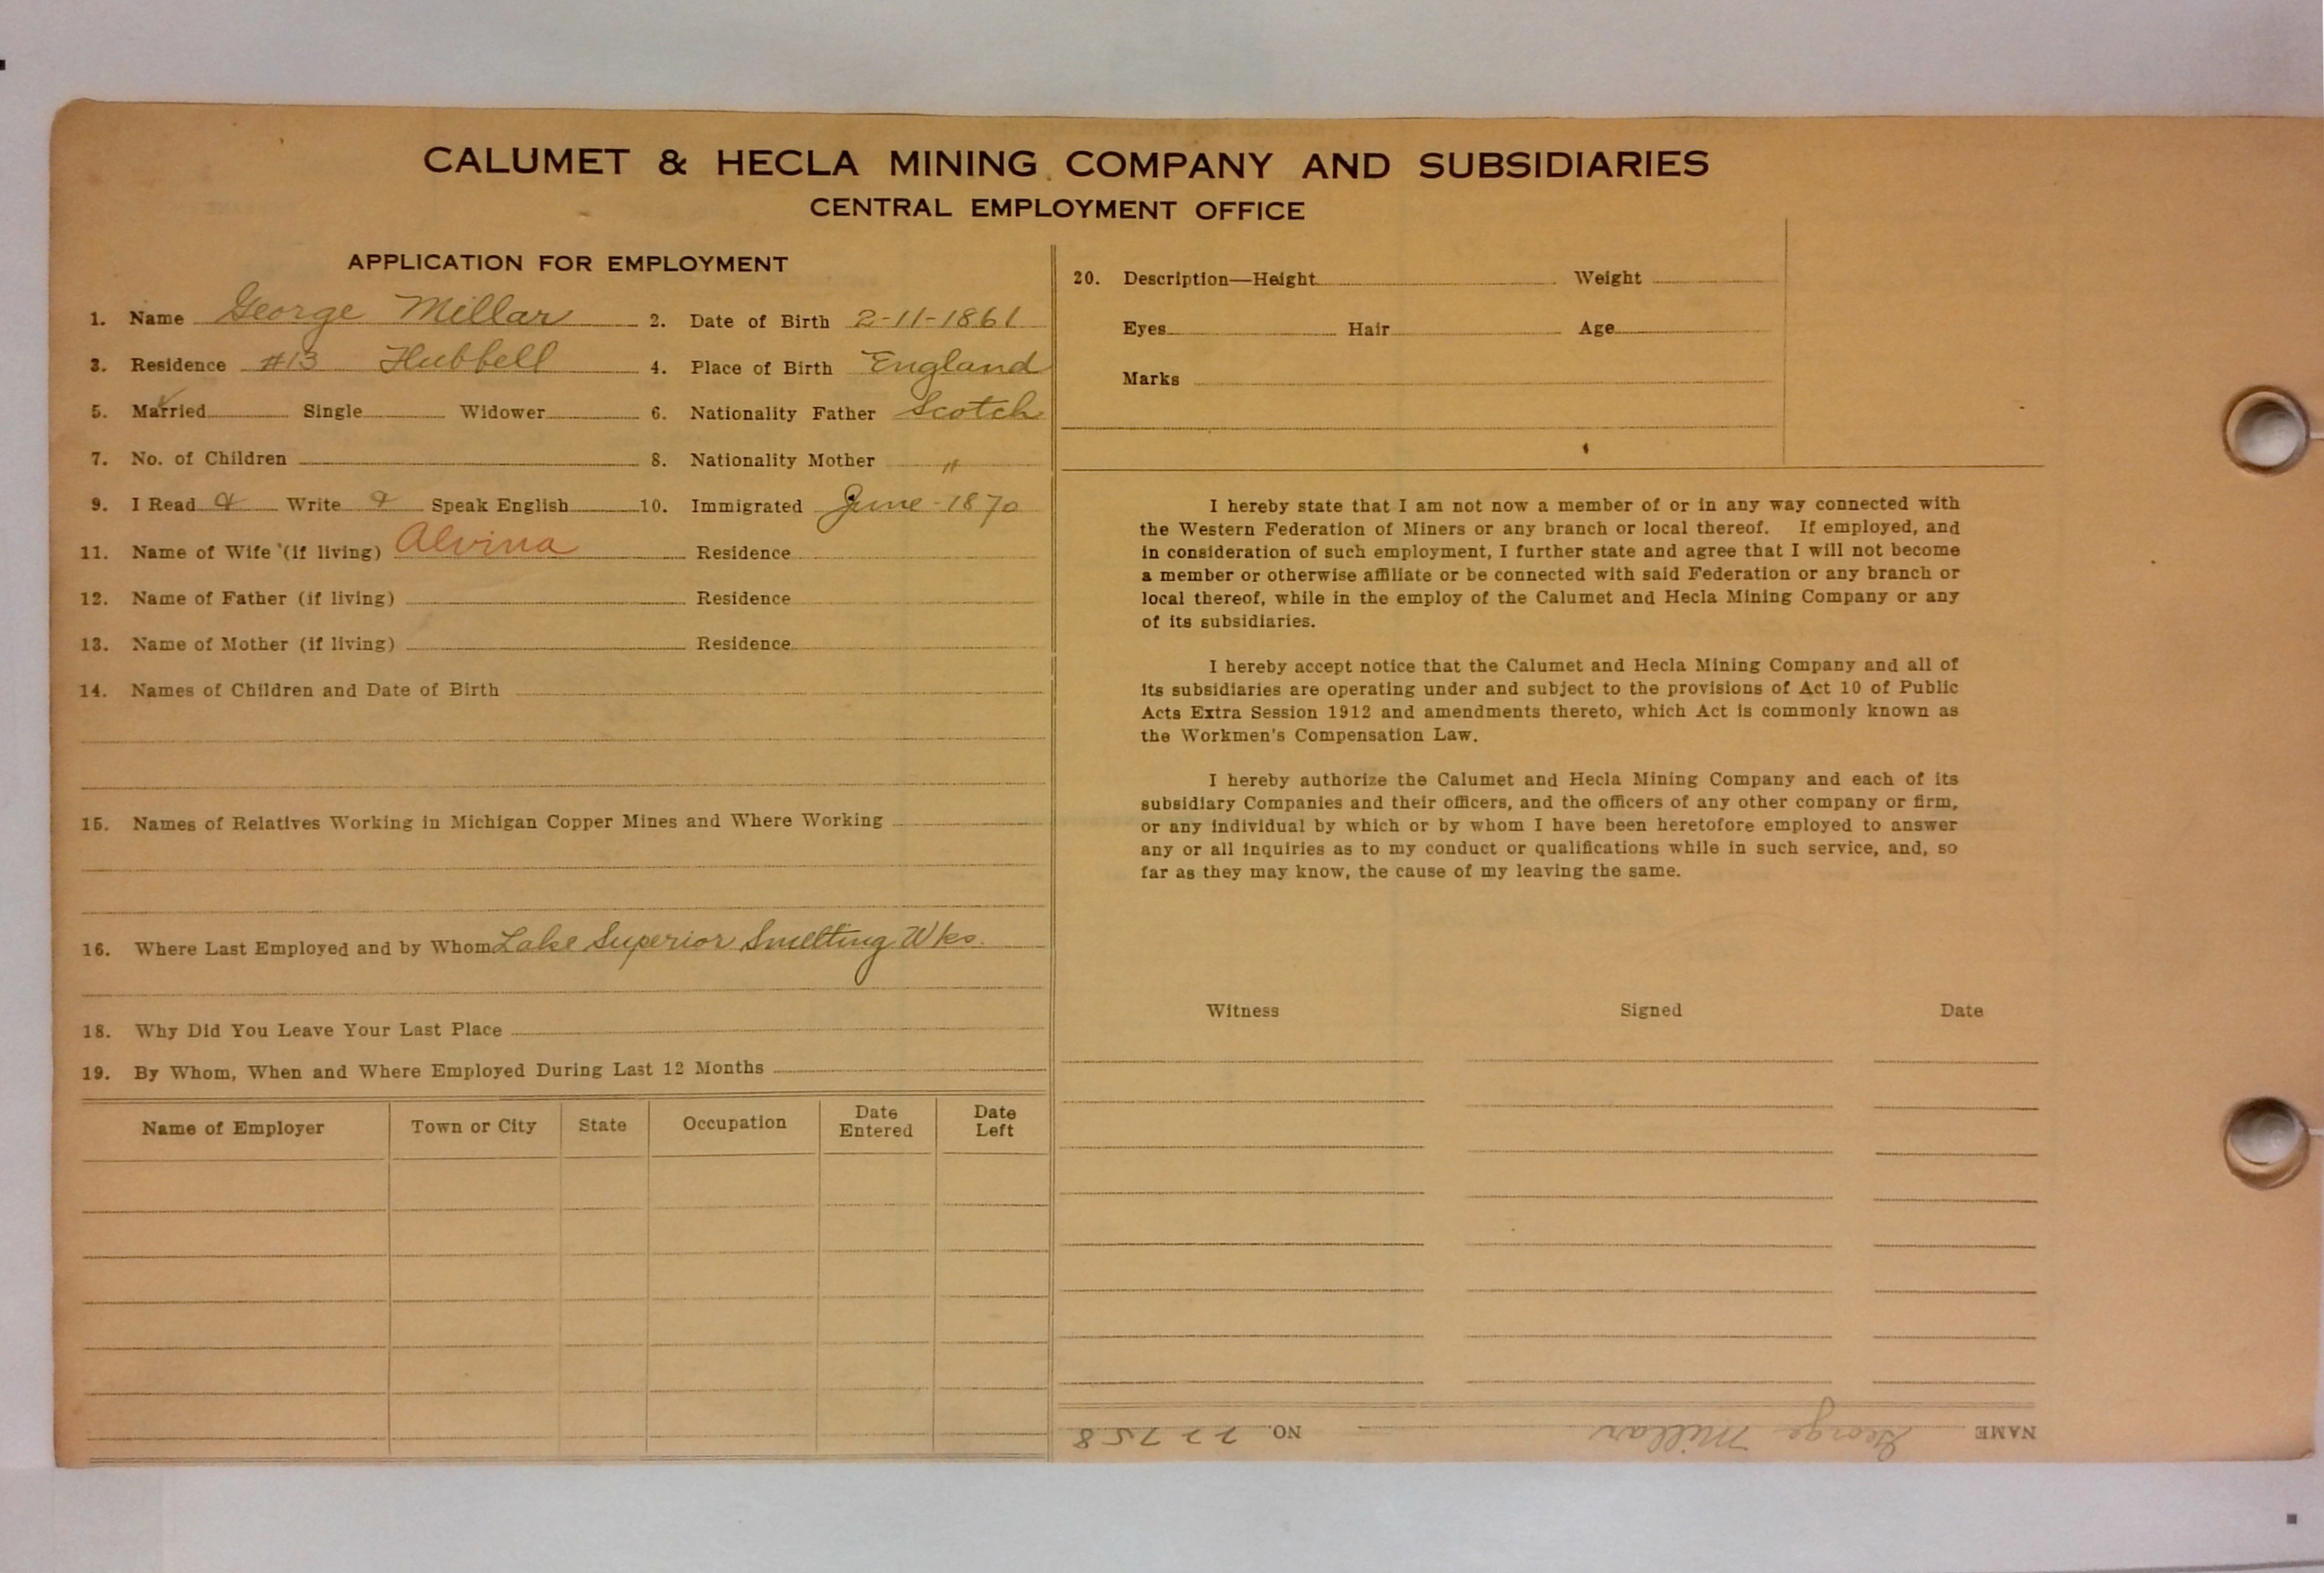 CALUMET & HECLA MINING COMPANY AND SUBSIDIARIES
CENTRAL EMPLOYMENT OFFICE
APPLICATION FOR EMPLOYMENT
1. Name George Millar 2. Date of Birth 2-11-1861
3. Residence #13 Hubbell 4. Place of Birth England
5. Married ✓ Single Widower 6. Nationality Father Scotch
7. No. of Children 8. Nationality Mother "
9. I Read & Write & Speak English 10. Immigrated June-1870
11. Name of Wife (if living) Alvina Residence
12. Name of Father (if living) Residence
13. Name of Mother (if living) Residence
14. Names of Children and Date of Birth
15. Names of Relatives Working in Michigan Copper Mines and Where Working
16. Where Last Employed and by Whom Lake Superior Smelting Wks.
18. Why Did You Leave Your Last Place
19. By Whom, When and Where Employed During Last 12 Months
Name of Employer Town or City State Occupation Date Entered Date Left
20. Description—Height Weight
Eyes Hair Age
Marks
I hereby state that I am not now a member of or in any way connected with
the Western Federation of Miners or any branch or local thereof. If employed, and
in consideration of such employment, I further state and agree that I will not become
a member or otherwise affiliate or be connected with said Federation or any branch or
local thereof, while in the employ of the Calumet and Hecla Mining Company or any
of its subsidiaries.
I hereby accept notice that the Calumet and Hecla Mining Company and all of
its subsidiaries are operating under and subject to the provisions of Act 10 of Public
Acts Extra Session 1912 and amendments thereto, which Act is commonly known as
the Workmen's Compensation Law.
I hereby authorize the Calumet and Hecla Mining Company and each of its
subsidiary Companies and their officers, and the officers of any other company or firm,
or any individual by which or by whom I have been heretofore employed to answer
any or all inquiries as to my conduct or qualifications while in such service, and, so
far as they may know, the cause of my leaving the same.
Witness Signed Date
NAME George Millar NO. 22758